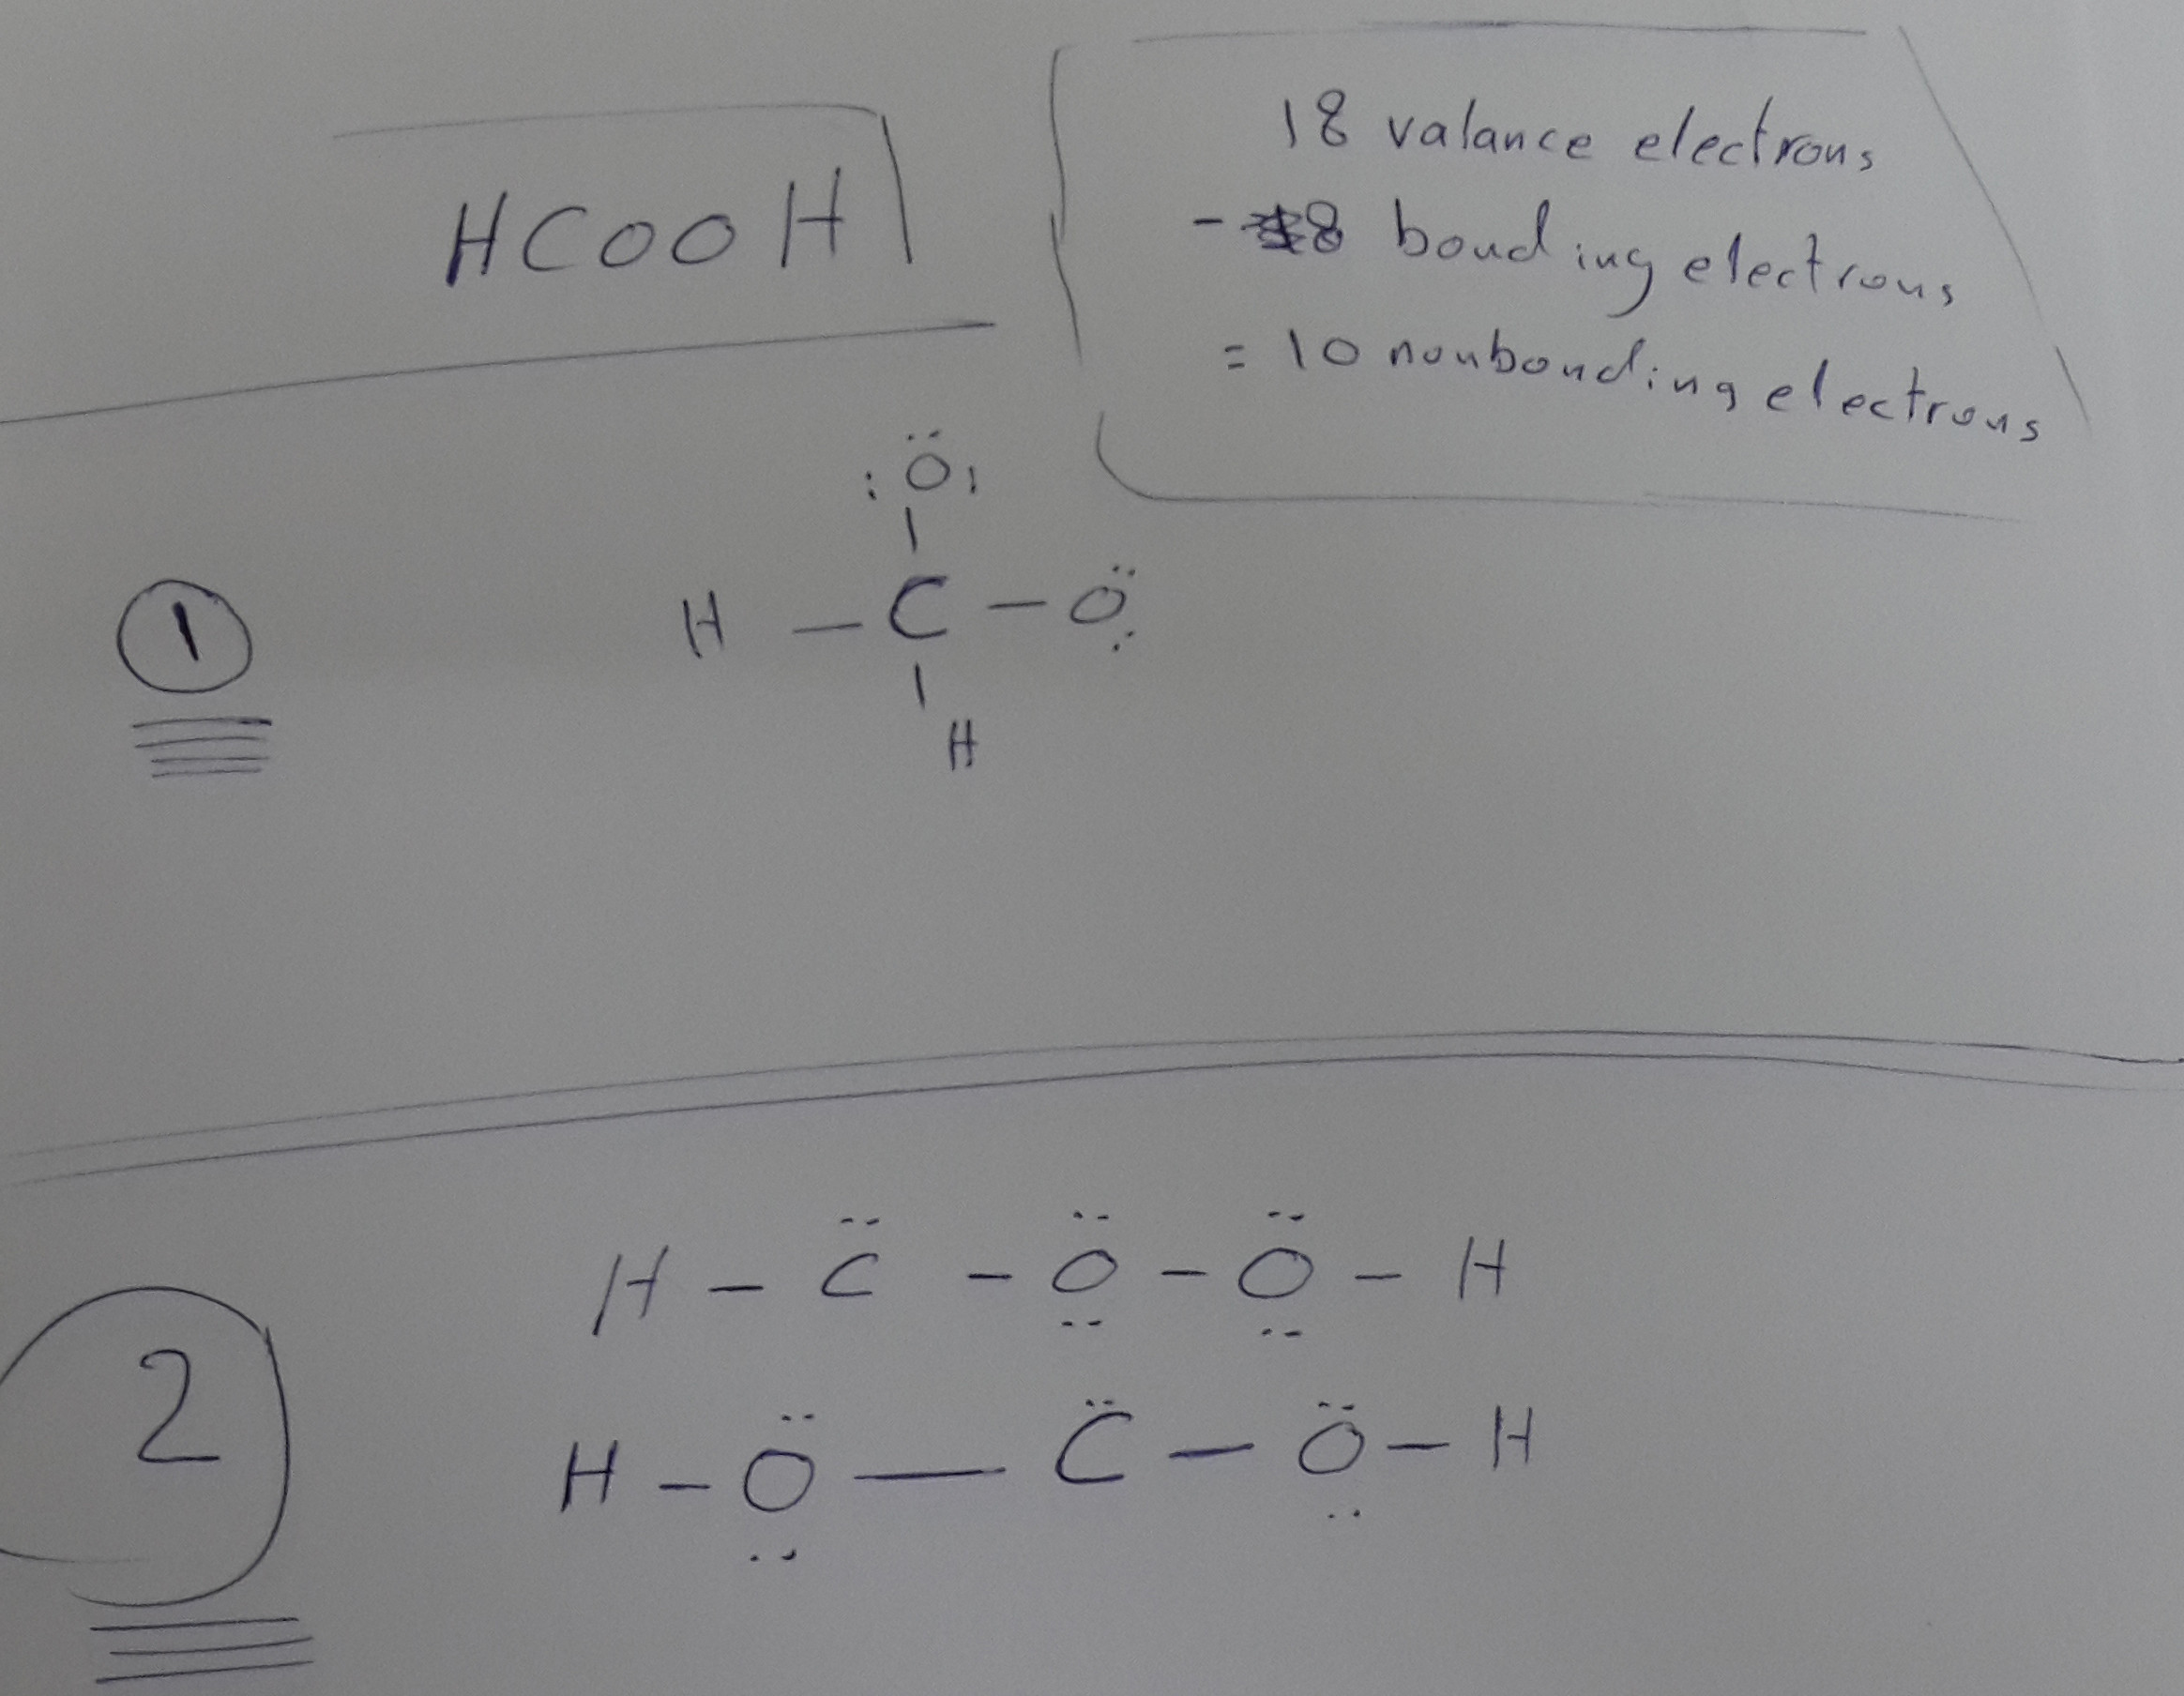 HCOOH
18 valance electrons
- 8 bonding electrons
= 10 nonbonding electrons
:Ö:
1
H - C - Ö:
H
2
H - C̈ - Ö̤ - Ö̤ - H
H - Ö̤ - C̈ - Ö̤ - H